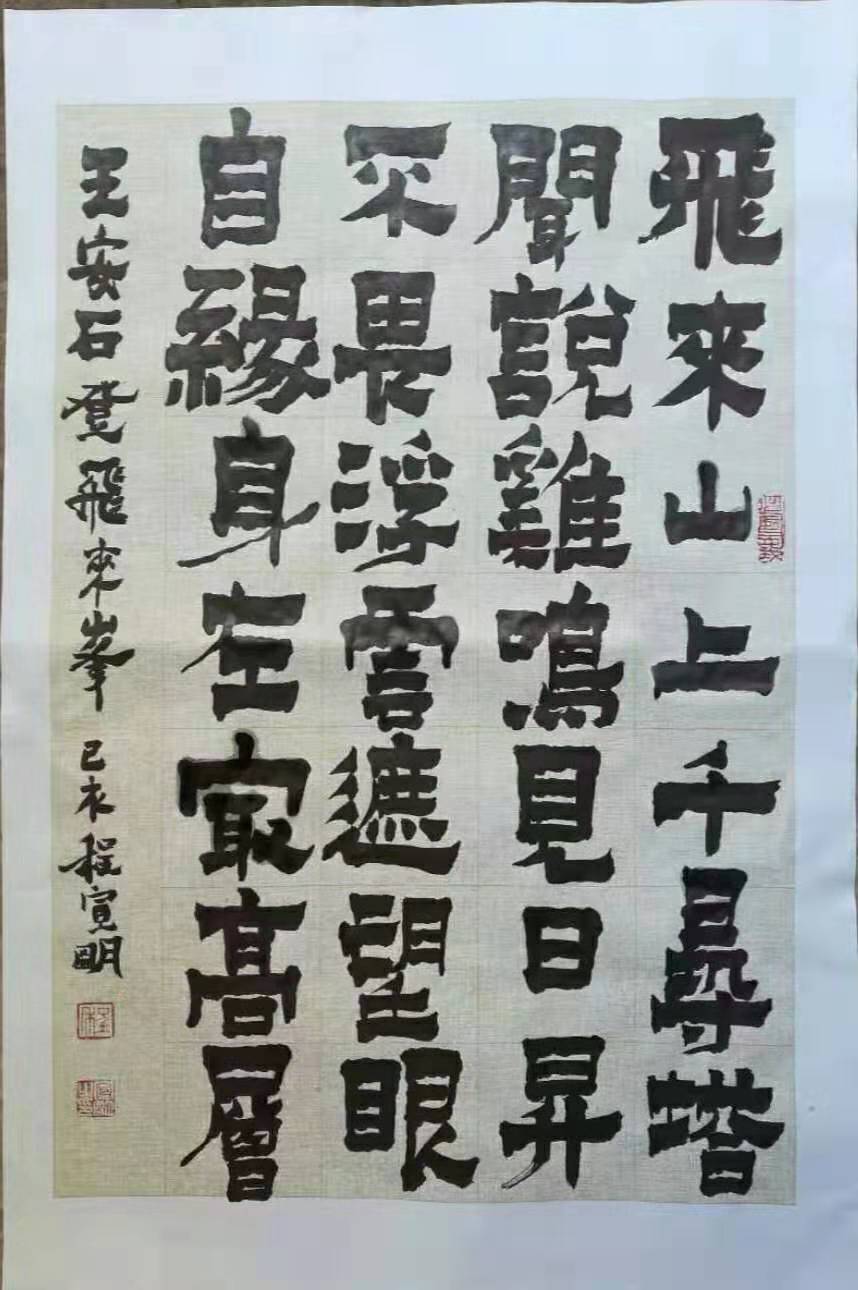 飛來山上千尋塔
聞說雞鳴見日昇
不畏浮雲遮望眼
自緣身在最高層
王安石登飛來峯 己亥程宽明